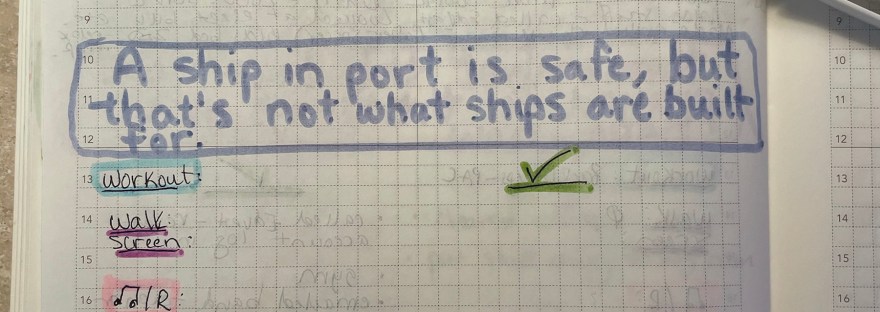 9
9
10 A ship in port is safe, but
10
11 that's not what ships are built
11
12 for.
12
13 Workout: ✓
13
14 Walk
14
Screen:
15
15
16 ♫/R:
16